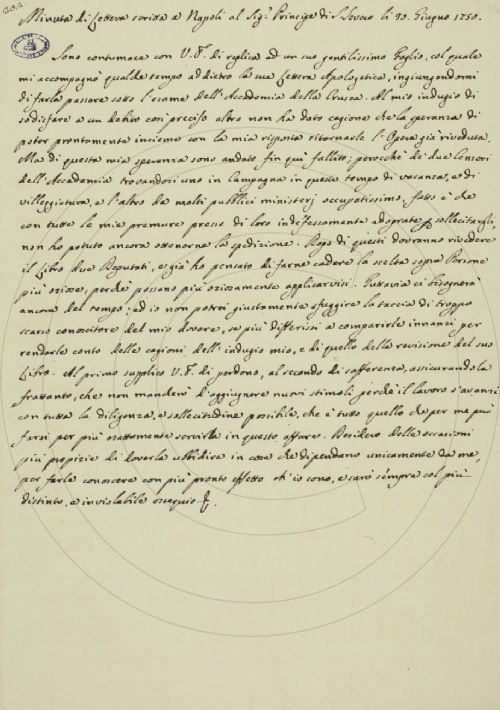 Minuta di Lettera scritta a Napoli al Sig.r Principe di S. Severo li 30. Giugno 1750.
Sono contumace con V.E. di replica ad un suo gentilissimo Foglio, col quale
mi accompagnò qualche tempo addietro la sua Lettera Apologetica, ingiungendomi
di farla passare sotto l'esame dell'Accademia della Crusca. Al mio indugio di
sodisfare a un debito così preciso altro non ha dato cagione che la speranza di
poter prontamente insieme con la mia risposta ritornarle l'Opera già riveduta.
Ma di questa mia speranza sono andato fin quì fallito; perocchè de' due Censori
dell'Accademia trovandosi uno in Campagna in questo tempo di vacanze, e di
villeggiatura, e l'altro da molti pubblici ministerj occupatissimo, fatto è che
con tutte le mie premure presso di loro indefessamente adoprate sollecitargli,
non ho potuto ancora ottenerne la spedizione. Dopo di questi dovranno rivedere
il Libro due Deputati, e già ho pensato di farne cadere la scelta sopra Persone
più oziose, perchè possano più oziosamente applicarvisi. Tuttavia ci bisognerà
ancora del tempo; ed io non potrei giustamente sfuggire la taccia di troppo
scarso conoscitore del mio dovere, se più differissi a comparirle innanzi per
renderle conto delle cagioni dell'indugio mio, e di quello della revisione del suo
Libro. Al primo supplico V.E. di perdono, al secondo di sofferenza, assicurandola
frattanto, che non manderò d'aggiugnere nuovi stimoli perchè il lavoro s'avanzi
con tutta la diligenza, e sollecitudine possibile, che è tutto quello che per me può
farsi per più esattamente servirla in questo affare. Desidero delle occasioni
più propizie di doverla ubbidire in cose che dipendano unicamente da me,
per farle conoscere con più pronto effetto ch'io sono, e sarò sempre col più
distinto, e inviolabile ossequio